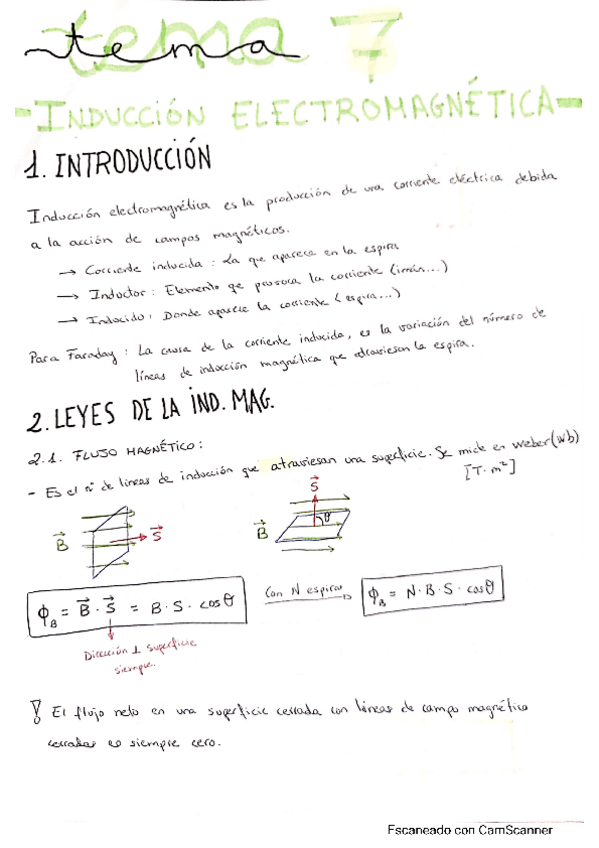 tema 7
- INDUCCIÓN ELECTROMAGNÉTICA -
1. INTRODUCCIÓN
Inducción electromagnética es la producción de una corriente eléctrica debida
a la acción de campos magnéticos.
→ Corriente inducida : La que aparece en la espira
→ Inductor : Elemento qe provoca la corriente (imán...)
→ Inducido : Donde aparece la corriente (espira...)
Para Faraday : La causa de la corriente inducida, es la variación del número de
líneas de inducción magnética que atraviesan la espira.
2. LEYES DE LA IND. MAG.
2.1. FLUJO MAGNÉTICO :
- Es el nº de líneas de inducción que atraviesan una superficie. Se mide en weber (wb)
[T·m²]
B⃗ S⃗
B⃗ S⃗ θ
ϕ_B = B⃗ · S⃗ = B · S · cosθ
Con N espiras →
ϕ_B = N · B · S · cosθ
Dirección ⊥ superficie
siempre.
! El flujo neto en una superficie cerrada con líneas de campo magnético
cerradas es siempre cero.
Escaneado con CamScanner